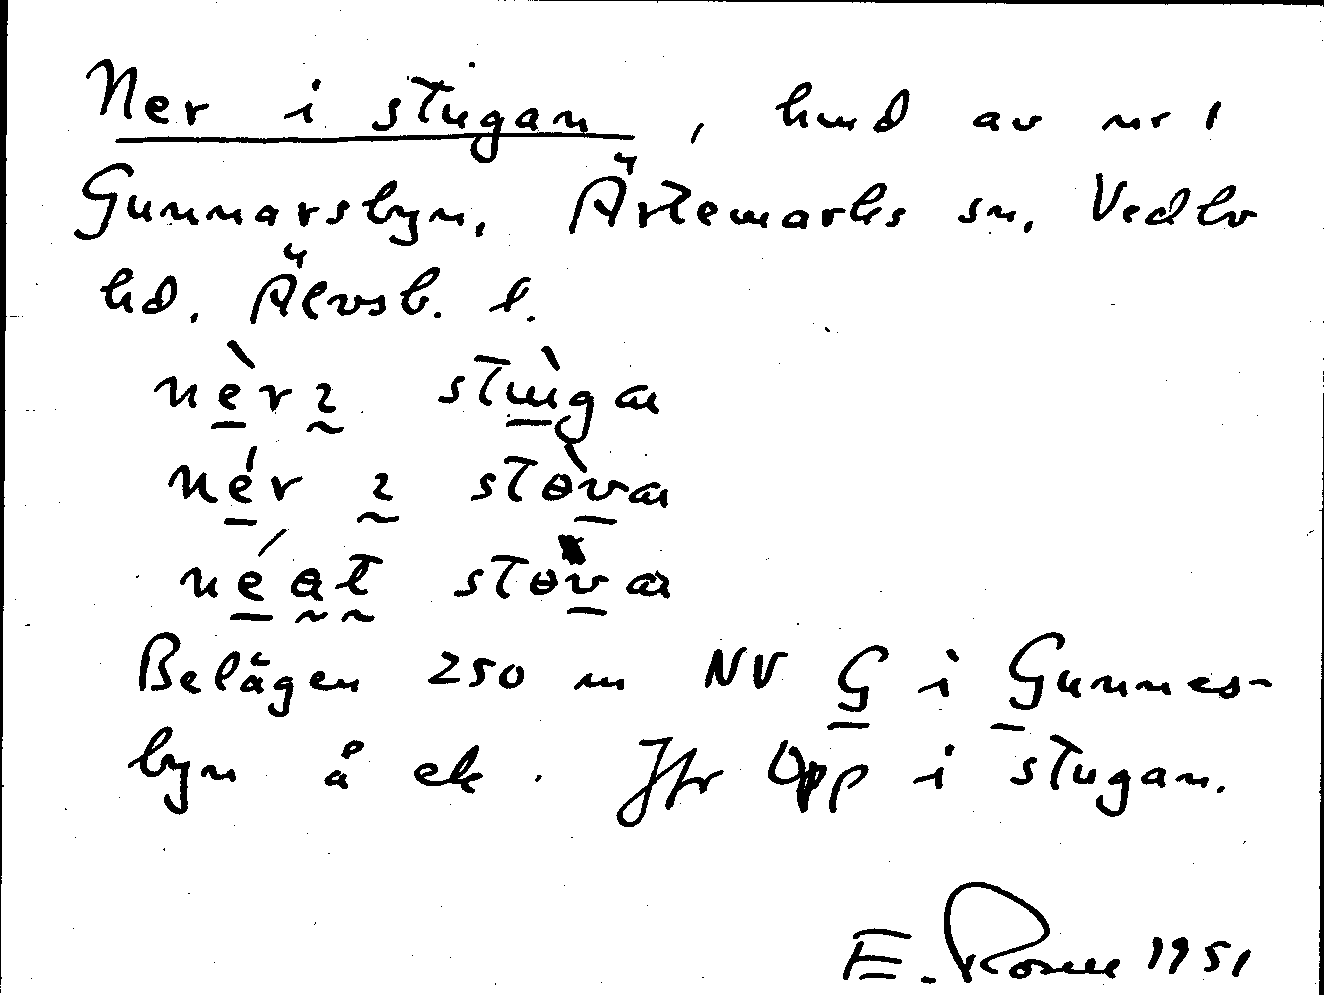 Ner i stugan, hmd av nr 1
Gunnarsbyn, Ärtemarks sn, Vedbo
hd. Älvsb. l.
nèr ɩ stùgaɩ
nér ɩ stɵ̀vaɩ
néət stɵ̀vaɩ
Belägen 250 m NV G i Gunnes-
byn å ek. Jfr Upp i stugan.
E. Rosell 1951